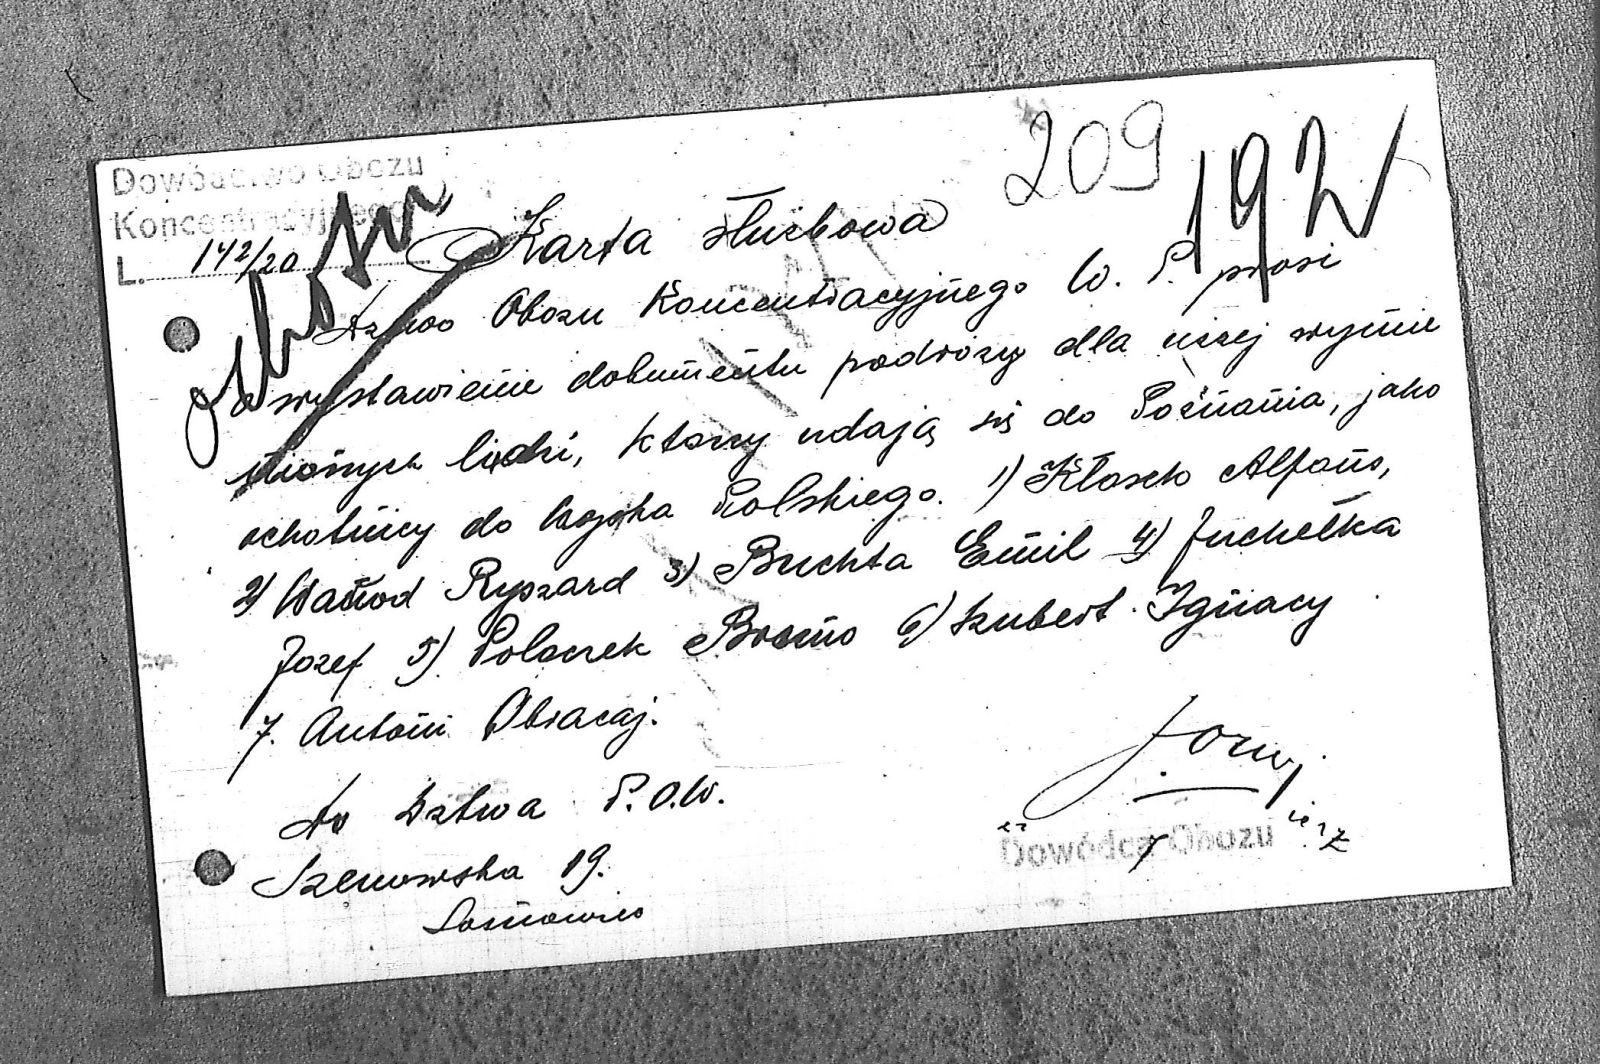 209
192
Dowództwo Obozu
Koncentracyjnego
L. 142/20
Karta służbowa
Dztwo Obozu Koncentracyjnego W. P. prosi
o wystawienie dokumentu podróży dla niżej wymie
nionych ludzi, którzy udają się do Poznania, jako
ochotnicy do Wojska Polskiego. 1) Kłosek Alfons,
2) Ryszard 3) Buchta Emil 4) Juchełka
Jozef 5) Polaczek Bruno 6) Szubert Ignacy
7. Antoni Obracaj.
Do Dztwa P.O.W.
19.
Sosnowiec
Dowódca Obozu